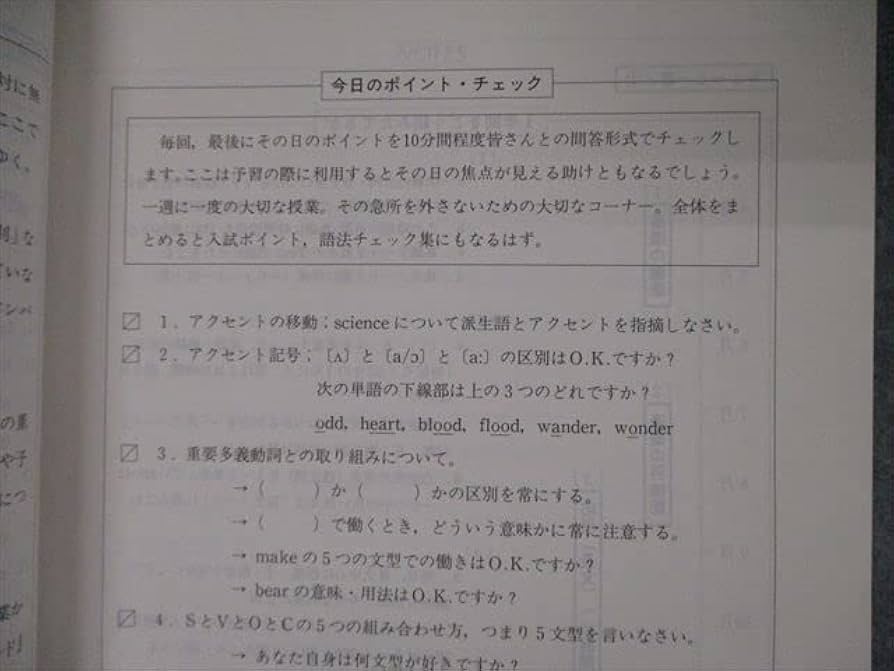 対に無
ここで
ゆく。
今日のポイント・チェック
毎回，最後にその日のポイントを10分間程度皆さんとの問答形式でチェックし
ます。ここは予習の際に利用するとその日の焦点が見える助けともなるでしょう。
一週に一度の大切な授業。その急所を外さないための大切なコーナー。全体をま
とめると入試ポイント，語法チェック集にもなるはず。
1．アクセントの移動；scienceについて派生語とアクセントを指摘しなさい。
2．アクセント記号；〔ʌ〕と〔a/ɔ〕と〔a:〕の区別はO.K.ですか？
次の単語の下線部は上の3つのどれですか？
odd, heart, blood, flood, wander, wonder
3．重要多義動詞との取り組みについて。
→（　　）か（　　）かの区別を常にする。
→（　　）で働くとき，どういう意味かに常に注意する。
→ makeの5つの文型での働きはO.K.ですか？
→ bearの意味・用法はO.K.ですか？
4．SとVとOとCの5つの組み合わせ方，つまり5文型を言いなさい。
→ あなた自身は何文型が好きですか？